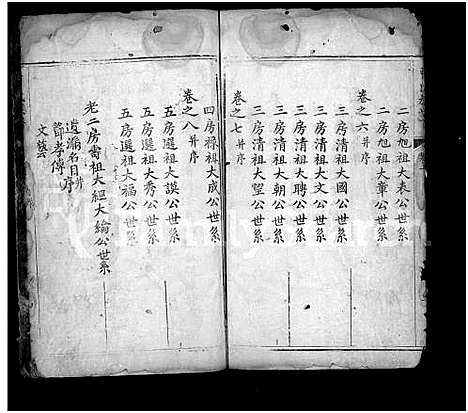 二房旭祖大表公世系
二房旭祖大章公世系
卷之六并序
三房清祖大國公世系
三房清祖大文公世系
三房清祖大聘公世系
三房清祖大朝公世系
三房清祖大望公世系
卷之七并序
四房祿祖大成公世系
卷之八并序
五房暹祖大謨公世系
五房暹祖大秀公世系
五房暹祖大福公世系
老二房喬祖大經大綸公世系
遺漏名目并序
節孝傳
文藝